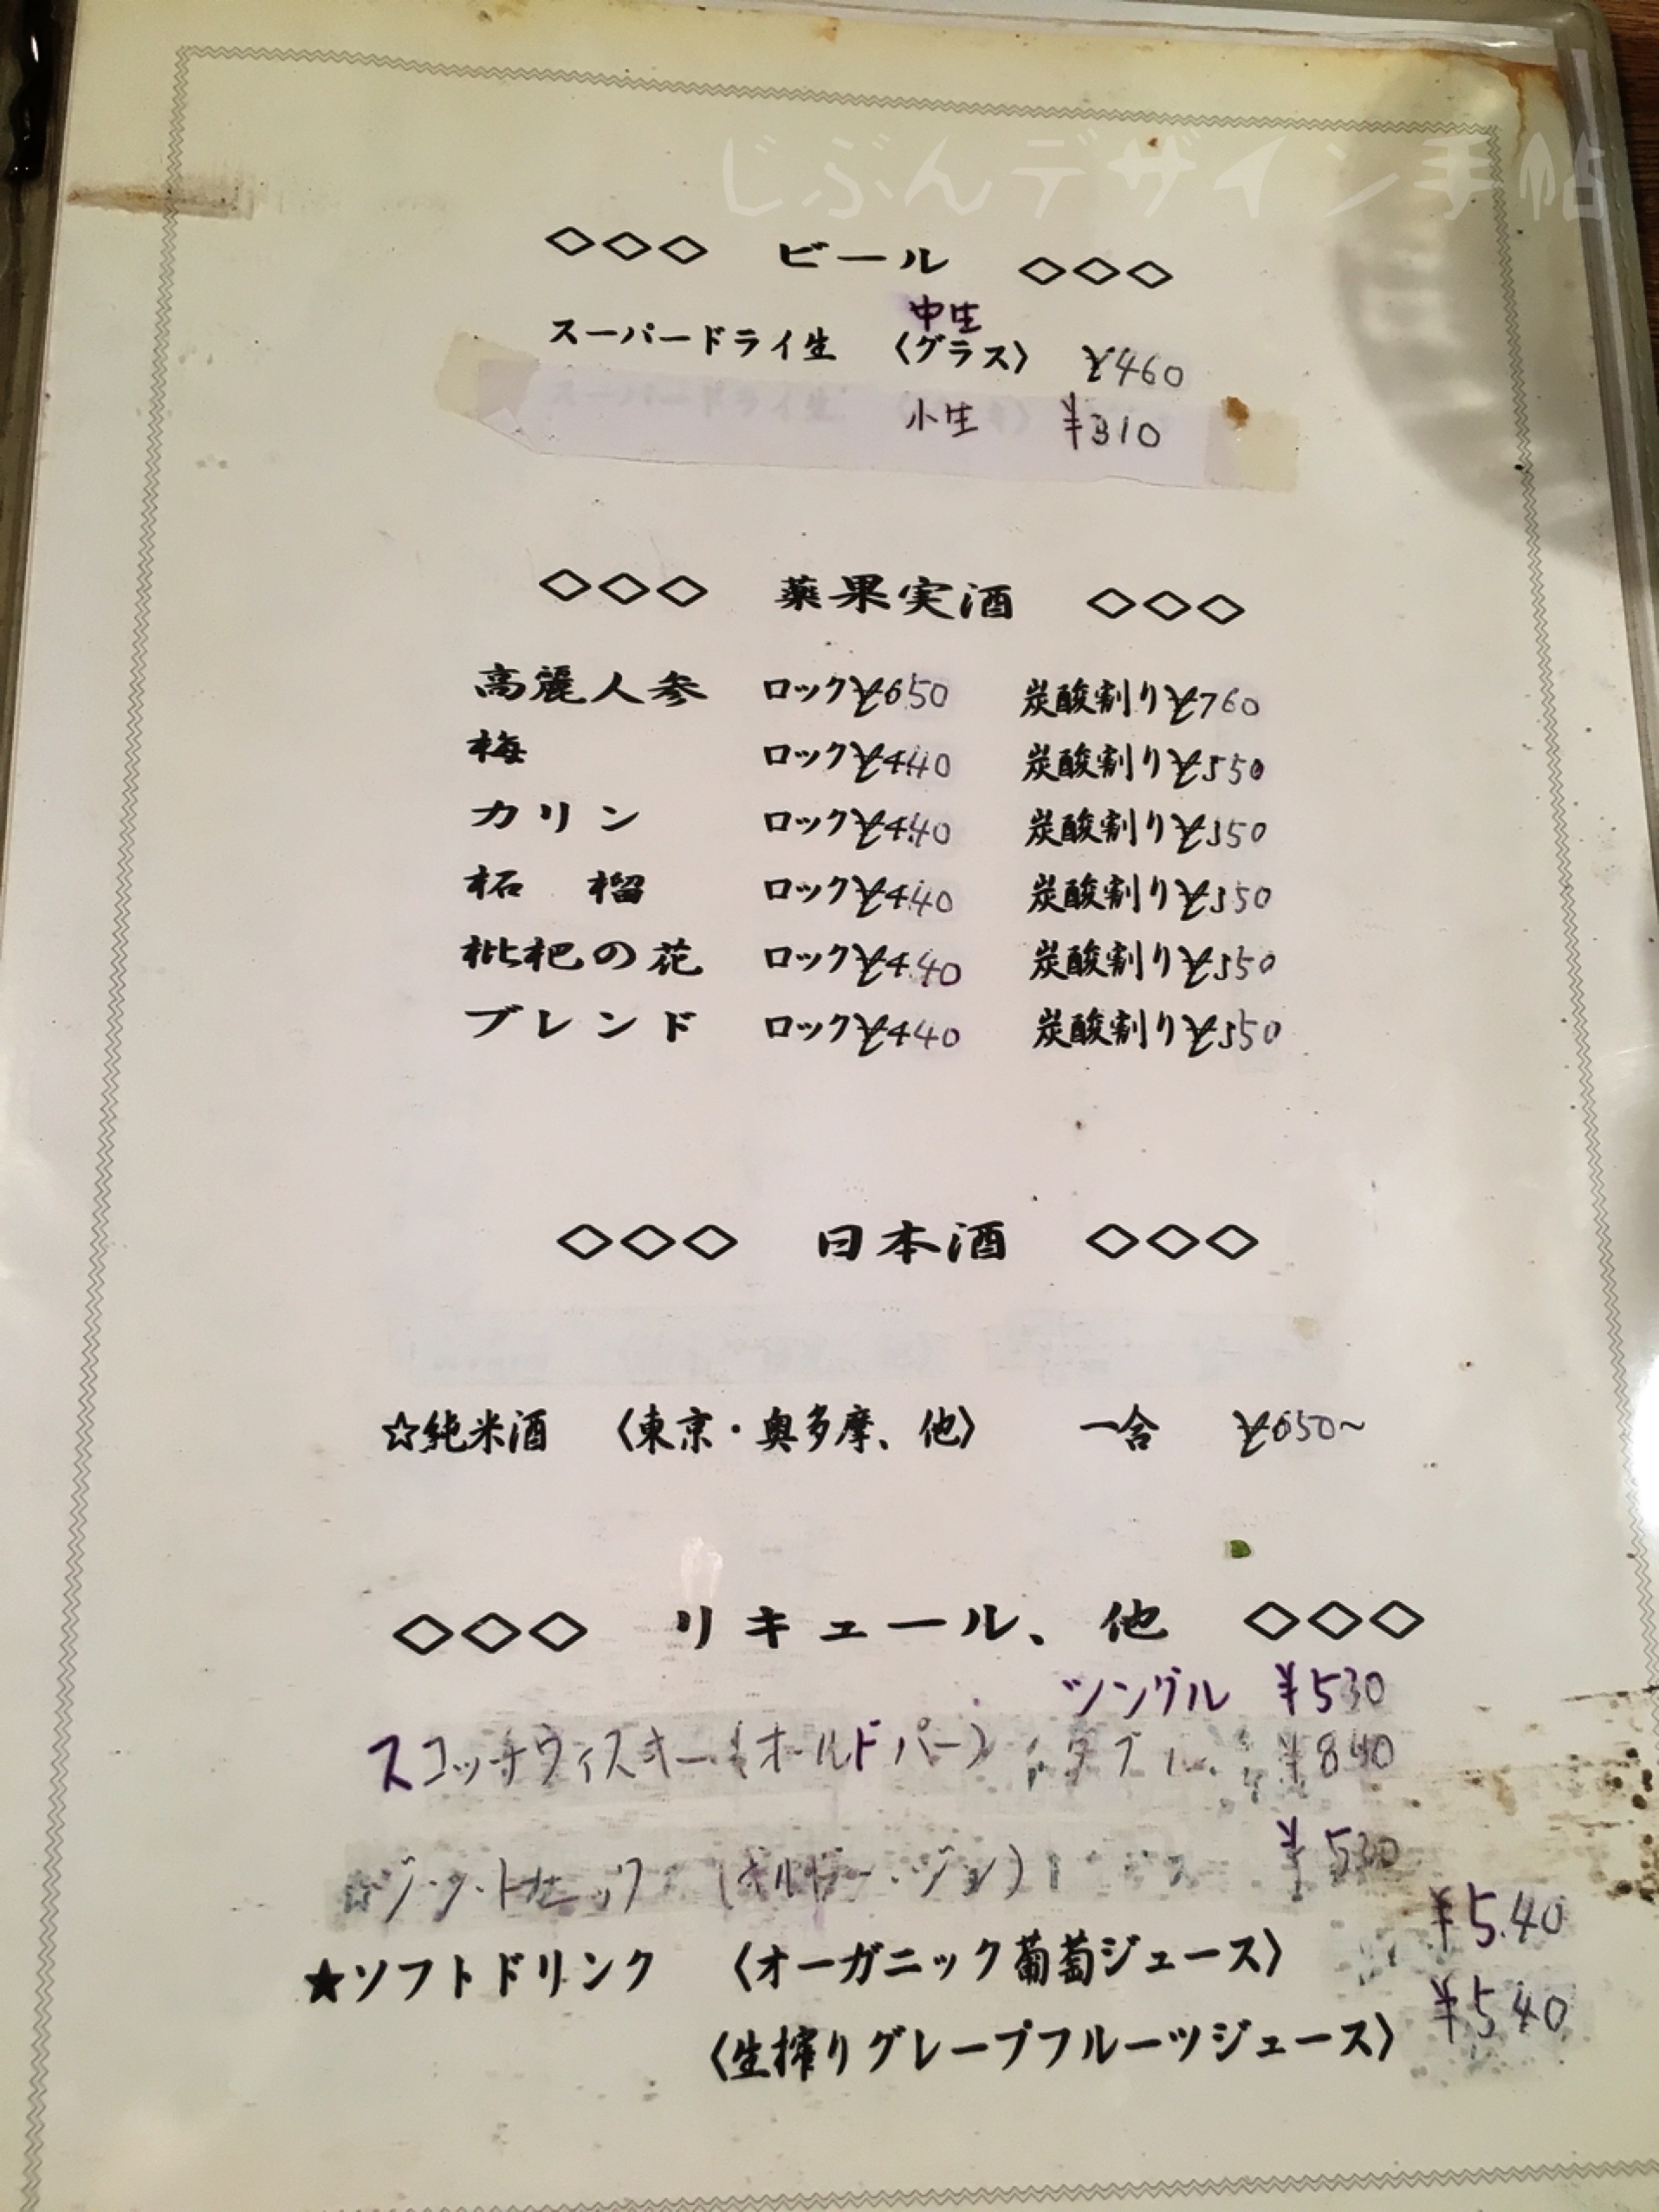 じぶんデザイン手帖
◇◇◇ ビール ◇◇◇
中生
スーパードライ生 〈グラス〉 ¥460
小生 ¥310
◇◇◇ 薬果実酒 ◇◇◇
高麗人参 ロック¥650 炭酸割り¥760
梅 ロック¥440 炭酸割り¥550
カリン ロック¥440 炭酸割り¥550
柘榴 ロック¥440 炭酸割り¥550
枇杷の花 ロック¥440 炭酸割り¥550
ブレンド ロック¥440 炭酸割り¥550
◇◇◇ 日本酒 ◇◇◇
☆純米酒 〈東京・奥多摩、他〉 一合 ¥650~
◇◇◇ リキュール、他 ◇◇◇
シングル ¥530
スコッチウィスキー(オールドパー) ダブル ¥840
¥530
☆ジン・トニック
¥540
★ソフトドリンク 〈オーガニック葡萄ジュース〉
¥540
〈生搾りグレープフルーツジュース〉